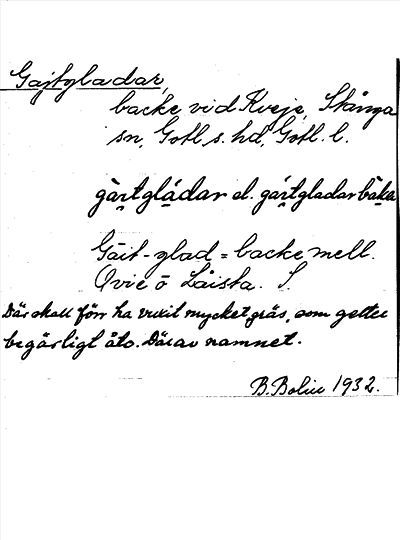 Gajtgladar,
backe vid Kveje, Stånga
sn, Gotl. s. hd, Gotl. l.
gàɪtglàdar el. gáɪtgladar bàka
Gait-glad = backe mell.
Ovie o Låista. S.
Där skall förr ha vuxit mycket gräs, som getter
begärligt åto. Därav namnet.
B. Bolin 1932.